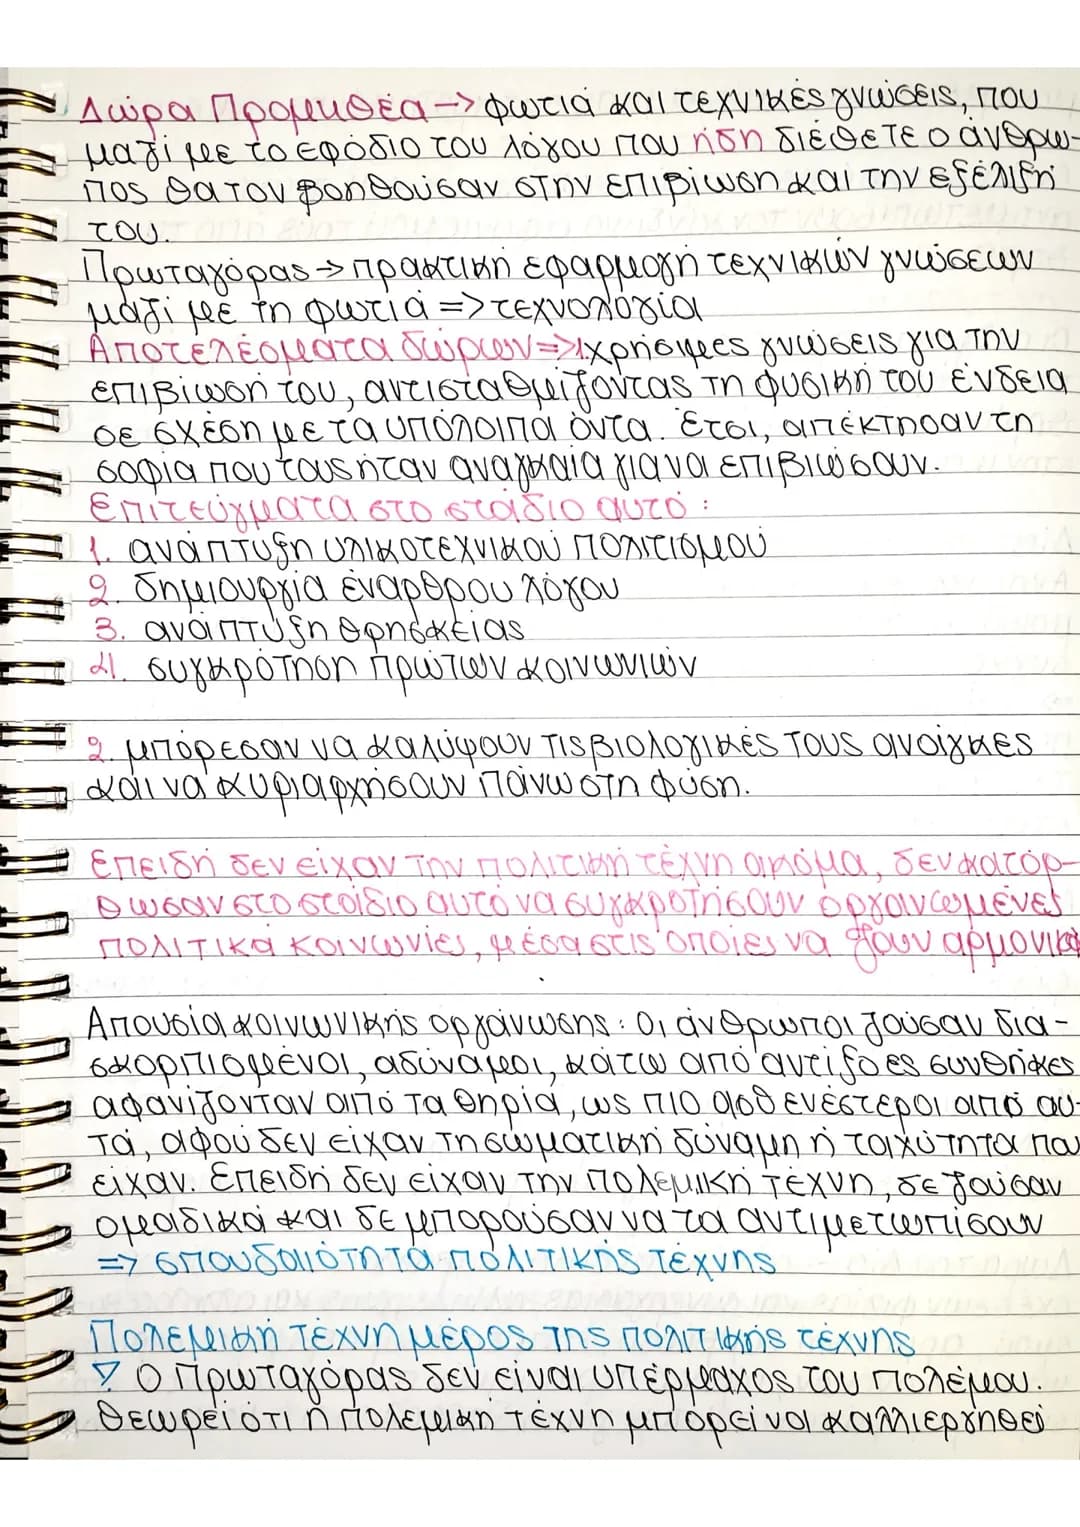 Δώρα Προμηθέα -> φωτιά και τεχνικές γνώσεις, που
μαζί με το εφόδιο του λόγου που ήδη διέθετε ο άνθρω-
πος θα τον βοηθούσαν στην επιβίωση και την εξέλιξή
του.
Πρωταγόρας -> πρακτική εφαρμογή τεχνικών γνώσεων
μαζί με τη φωτιά => τεχνολογία
Αποτελέσματα δώρων => 1. χρήσιμες γνώσεις για την
επιβίωσή του, αντισταθμίζοντας τη φυσική του ένδεια
σε σχέση με τα υπόλοιπα όντα. Έτσι, απέκτησαν τη
σοφία που τους ήταν αναγκαία για να επιβιώσουν.
Επιτεύγματα στο στάδιο αυτό :
1. ανάπτυξη υλικοτεχνικού πολιτισμού
2. δημιουργία έναρθρου λόγου
3. ανάπτυξη θρησκείας
4. συγκρότηση πρώτων κοινωνιών
2. μπόρεσαν να καλύψουν τις βιολογικές τους ανάγκες
και να κυριαρχήσουν πάνω στη φύση.
Επειδή δεν είχαν την πολιτική τέχνη ακόμα, δεν κατόρ-
θωσαν στο στάδιο αυτό να συγκροτήσουν οργανωμένες
πολιτικά κοινωνίες, μέσα στις οποίες να ζουν αρμονικά
Απουσία κοινωνικής οργάνωσης : Οι άνθρωποι ζούσαν δια-
σκορπισμένοι, αδύναμοι, κάτω από αντίξοες συνθήκες
αφανίζονταν από τα θηρία, ως πιο ασθενέστεροι από αυ-
τά, αφού δεν είχαν τη σωματική δύναμη ή ταχύτητα που
είχαν. Επειδή δεν είχαν την πολεμική τέχνη, δε ζούσαν
ομαδικά και δε μπορούσαν να τα αντιμετωπίσουν
=> σπουδαιότητα πολιτικής τέχνης
Πολεμική τέχνη μέρος της πολιτικής τέχνης
▽ Ο Πρωταγόρας δεν είναι υπέρμαχος του πολέμου.
Θεωρεί ότι η πολεμική τέχνη μπορεί να καλλιεργηθεί